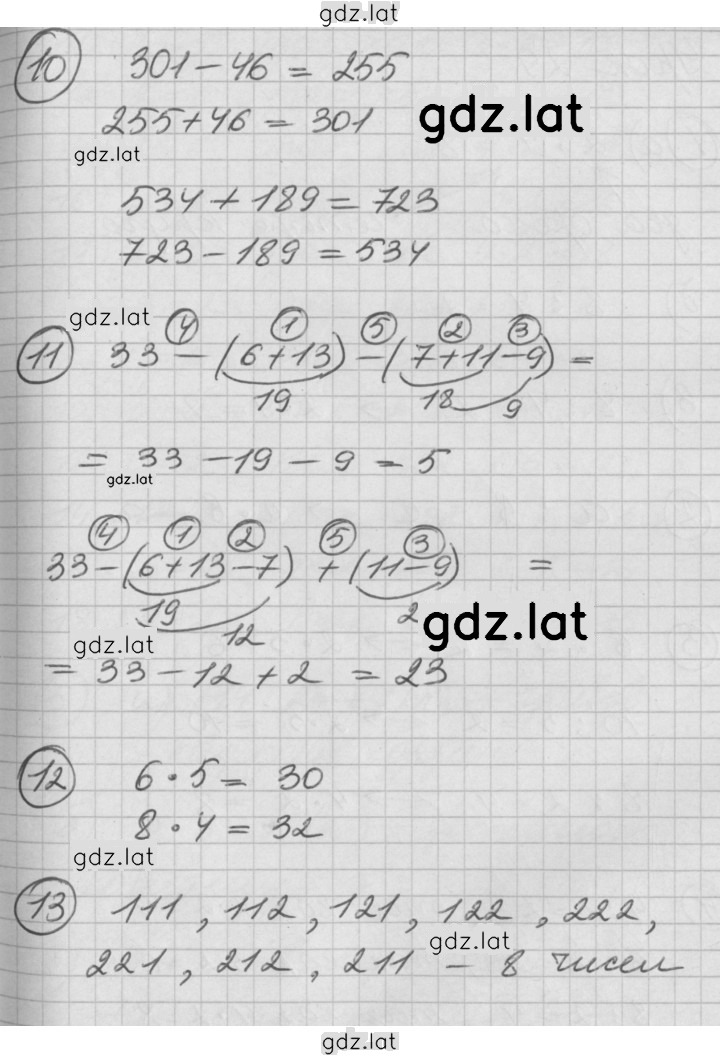 gdz.lat
10 301 - 46 = 255
255 + 46 = 301
gdz.lat
gdz.lat
534 + 189 = 723
723 - 189 = 534
gdz.lat
4 1 5 2 3
11 33 - (6 + 13) - (7 + 11 - 9) =
19 18 9
= 33 - 19 - 9 = 5
gdz.lat
4 1 2 5 3
33 - (6 + 13 - 7) + (11 - 9) =
19 12 2
gdz.lat
gdz.lat
= 33 - 12 + 2 = 23
12 6 · 5 = 30
8 · 4 = 32
gdz.lat
13 111, 112, 121, 122, 222,
gdz.lat
221, 212, 211 - 8 чисел
gdz.lat